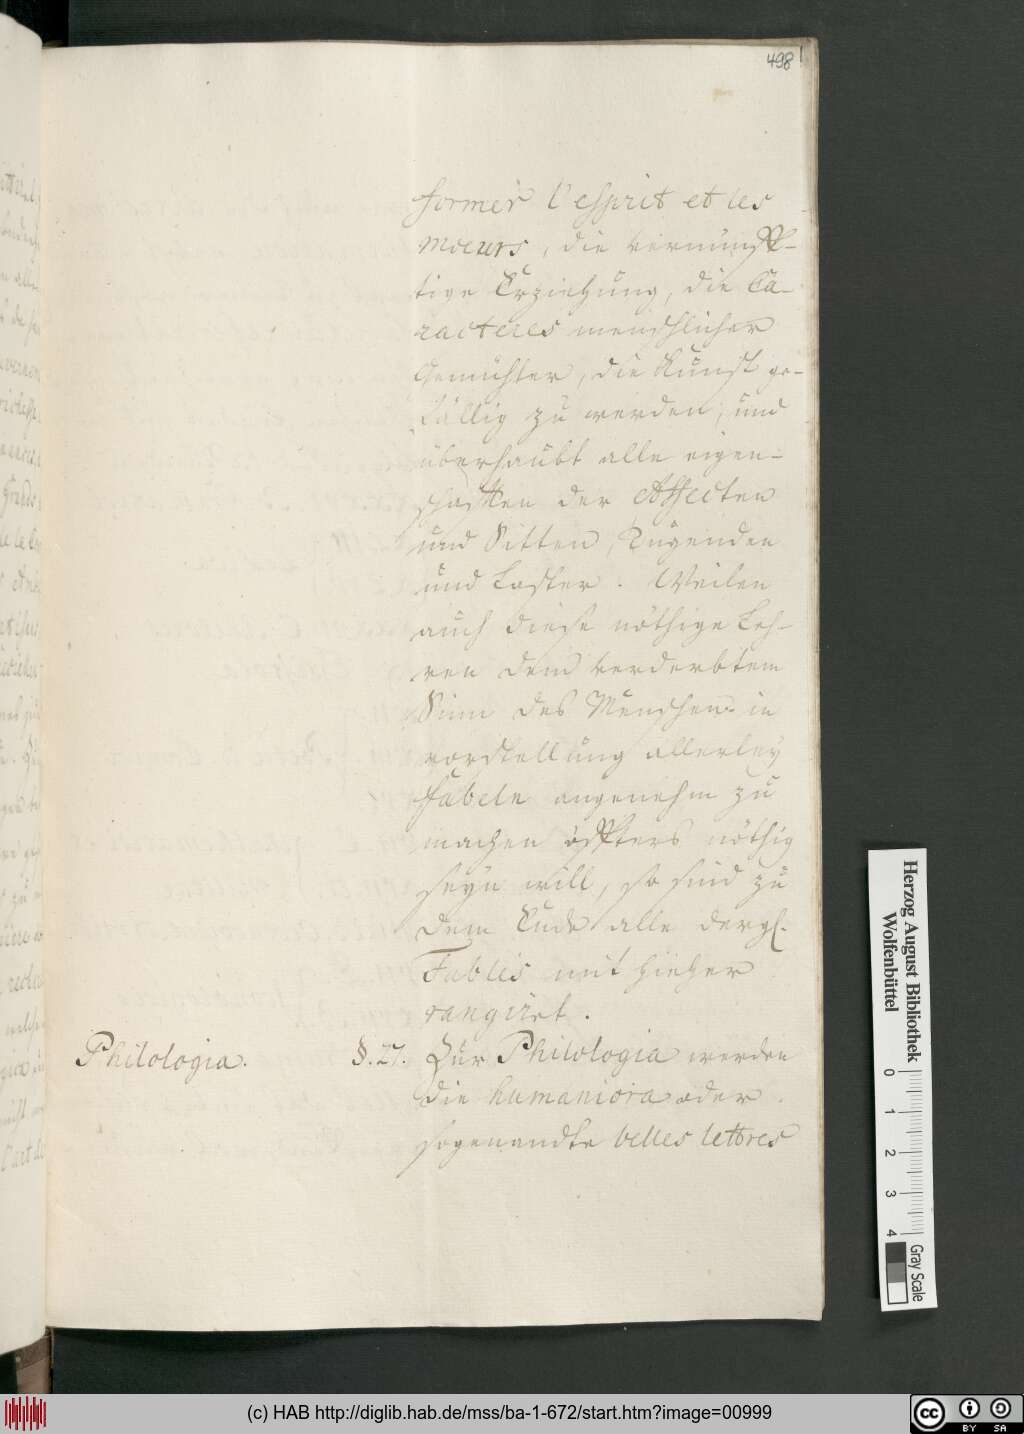 498
former l'esprit et les
moeurs, die vernünff-
tige Erziehung, die Ca-
racteres menschlicher
Gemühter, die Kunst ge-
fällig zu werden, und
überhaubt alle eigen-
schafften der Affecten
und Sitten, Tugenden
und Laster. Weilen
auch diese nöthige Leh-
ren dem verderbtem
Sinn des Menschen in
vorstellung allerley
Fabeln angenehm zu
machen öffters nöthig
seyn will, so sind zu
dem Ende alle dergl.
Fables mit hieher
rangiret.
Philologia. §. 27. Zur Philologia werden
die humaniora oder
sogenandte belles lettres
Herzog August Bibliothek
Wolfenbüttel
0 1 2 3 4
Gray Scale
(c) HAB http://diglib.hab.de/mss/ba-1-672/start.htm?image=00999
cc BY SA